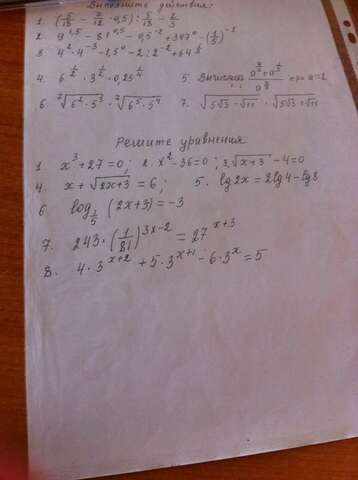 Выполните действия:
1. (5/13 - 7/12 · 0,5) : 5/13 - 2/3
2. 9^1,5 - 81^0,5 - 0,5^-2 + 347^0 - (1/5)^-1
3. 4^2 · 4^-3 - 1,5^0 - 2 : 2^-2 + 64^1/2
4. 6^1/2 · 3^1/2 · 0,25^1/4 5. Вычислить при a=2
6. ⁷√(6²·5³) · ⁷√(6⁵·5⁴) 7. √(5√3 - √11) · √(5√3 + √11)
Решите уравнения
1. x³ + 27 = 0; 2. x² - 36 = 0; 3. √(x+3) - 4 = 0
4. x + √(2x+3) = 6; 5. lg2x = 2lg4 - lg8
6. log_1/5 (2x+3) = -3
7. 243 · (1/81)^(3x-2) = 27^(x+3)
8. 4 · 3^(x+2) + 5 · 3^(x+1) - 6 · 3^x = 5